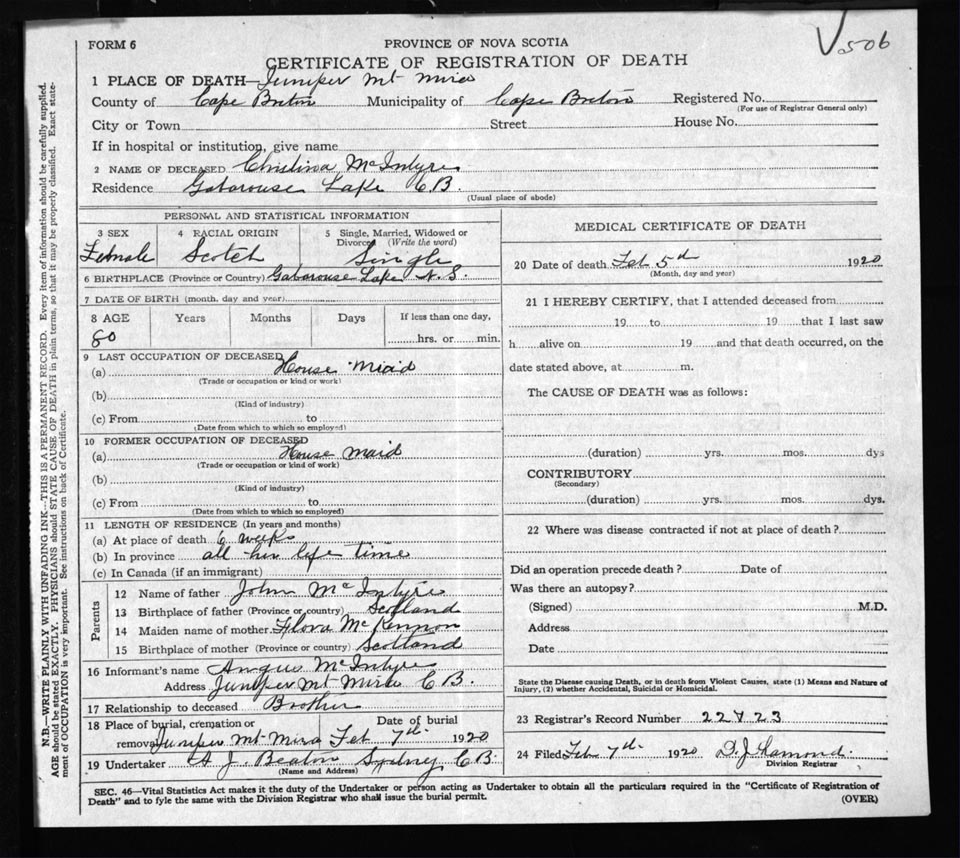 FORM 6
PROVINCE OF NOVA SCOTIA
506
CERTIFICATE OF REGISTRATION OF DEATH
1 PLACE OF DEATH—Juniper Mt Mira
County of Cape Breton Municipality of Cape Breton Registered No.
(For use of Registrar General only)
City or Town Street House No.
If in hospital or institution, give name
2 NAME OF DECEASED Christina McIntyre
Residence Gabarouse Lake C B.
(Usual place of abode)
PERSONAL AND STATISTICAL INFORMATION
3 SEX 4 RACIAL ORIGIN 5 Single, Married, Widowed or Divorced (Write the word)
Female Scotch Single
6 BIRTHPLACE (Province or Country) Gabarouse Lake N. S.
7 DATE OF BIRTH (month, day and year)
8 AGE Years Months Days If less than one day,
80 hrs. or min.
9 LAST OCCUPATION OF DECEASED
(a) House Maid
(Trade or occupation or kind or work)
(b)
(Kind of industry)
(c) From to
(Date from which to which so employed)
10 FORMER OCCUPATION OF DECEASED
(a) House Maid
(Trade or occupation or kind of work)
(b)
(Kind of industry)
(c) From to
(Date from which to which so employed)
11 LENGTH OF RESIDENCE (In years and months)
(a) At place of death 6 weeks
(b) In province all her life time
(c) In Canada (if an immigrant)
Parents
12 Name of father John McIntyre
13 Birthplace of father (Province or country) Scotland
14 Maiden name of mother Flora McKennon
15 Birthplace of mother (Province or country) Scotland
16 Informant's name Angus McIntyre
Address Juniper Mt Mira C B.
17 Relationship to deceased Brother
18 Place of burial, cremation or Date of burial
removal Juniper Mt Mira Feb 7th 1920
19 Undertaker A J. Beaton Sydney C B.
(Name and Address)
MEDICAL CERTIFICATE OF DEATH
20 Date of death Feb 5th 1920
(Month, day and year)
21 I HEREBY CERTIFY, that I attended deceased from
19 to 19 that I last saw
h alive on 19 and that death occurred, on the
date stated above, at m.
The CAUSE OF DEATH was as follows:
(duration) yrs. mos. dys
CONTRIBUTORY
(Secondary)
(duration) yrs. mos. dys.
22 Where was disease contracted if not at place of death?
Did an operation precede death? Date of
Was there an autopsy?
(Signed) M.D.
Address
Date
State the Disease causing Death, or in death from Violent Causes, state (1) Means and Nature of
Injury, (2) whether Accidental, Suicidal or Homicidal.
23 Registrar's Record Number 22 23
24 Filed Feb 7th 1920 D. J Lamond.
Division Registrar
SEC. 46—Vital Statistics Act makes it the duty of the Undertaker or person acting as Undertaker to obtain all the particulars required in the "Certificate of Registration of
Death" and to fyle the same with the Division Registrar who shall issue the burial permit.
(OVER)
N.B.—WRITE PLAINLY WITH UNFADING INK—THIS IS A PERMANENT RECORD. Every item of information should be carefully supplied.
AGE should be stated EXACTLY. PHYSICIANS should STATE CAUSE OF DEATH in plain terms, so that it may be properly classified. Exact state-
ment of OCCUPATION is very important. See instructions on back of Certificate.